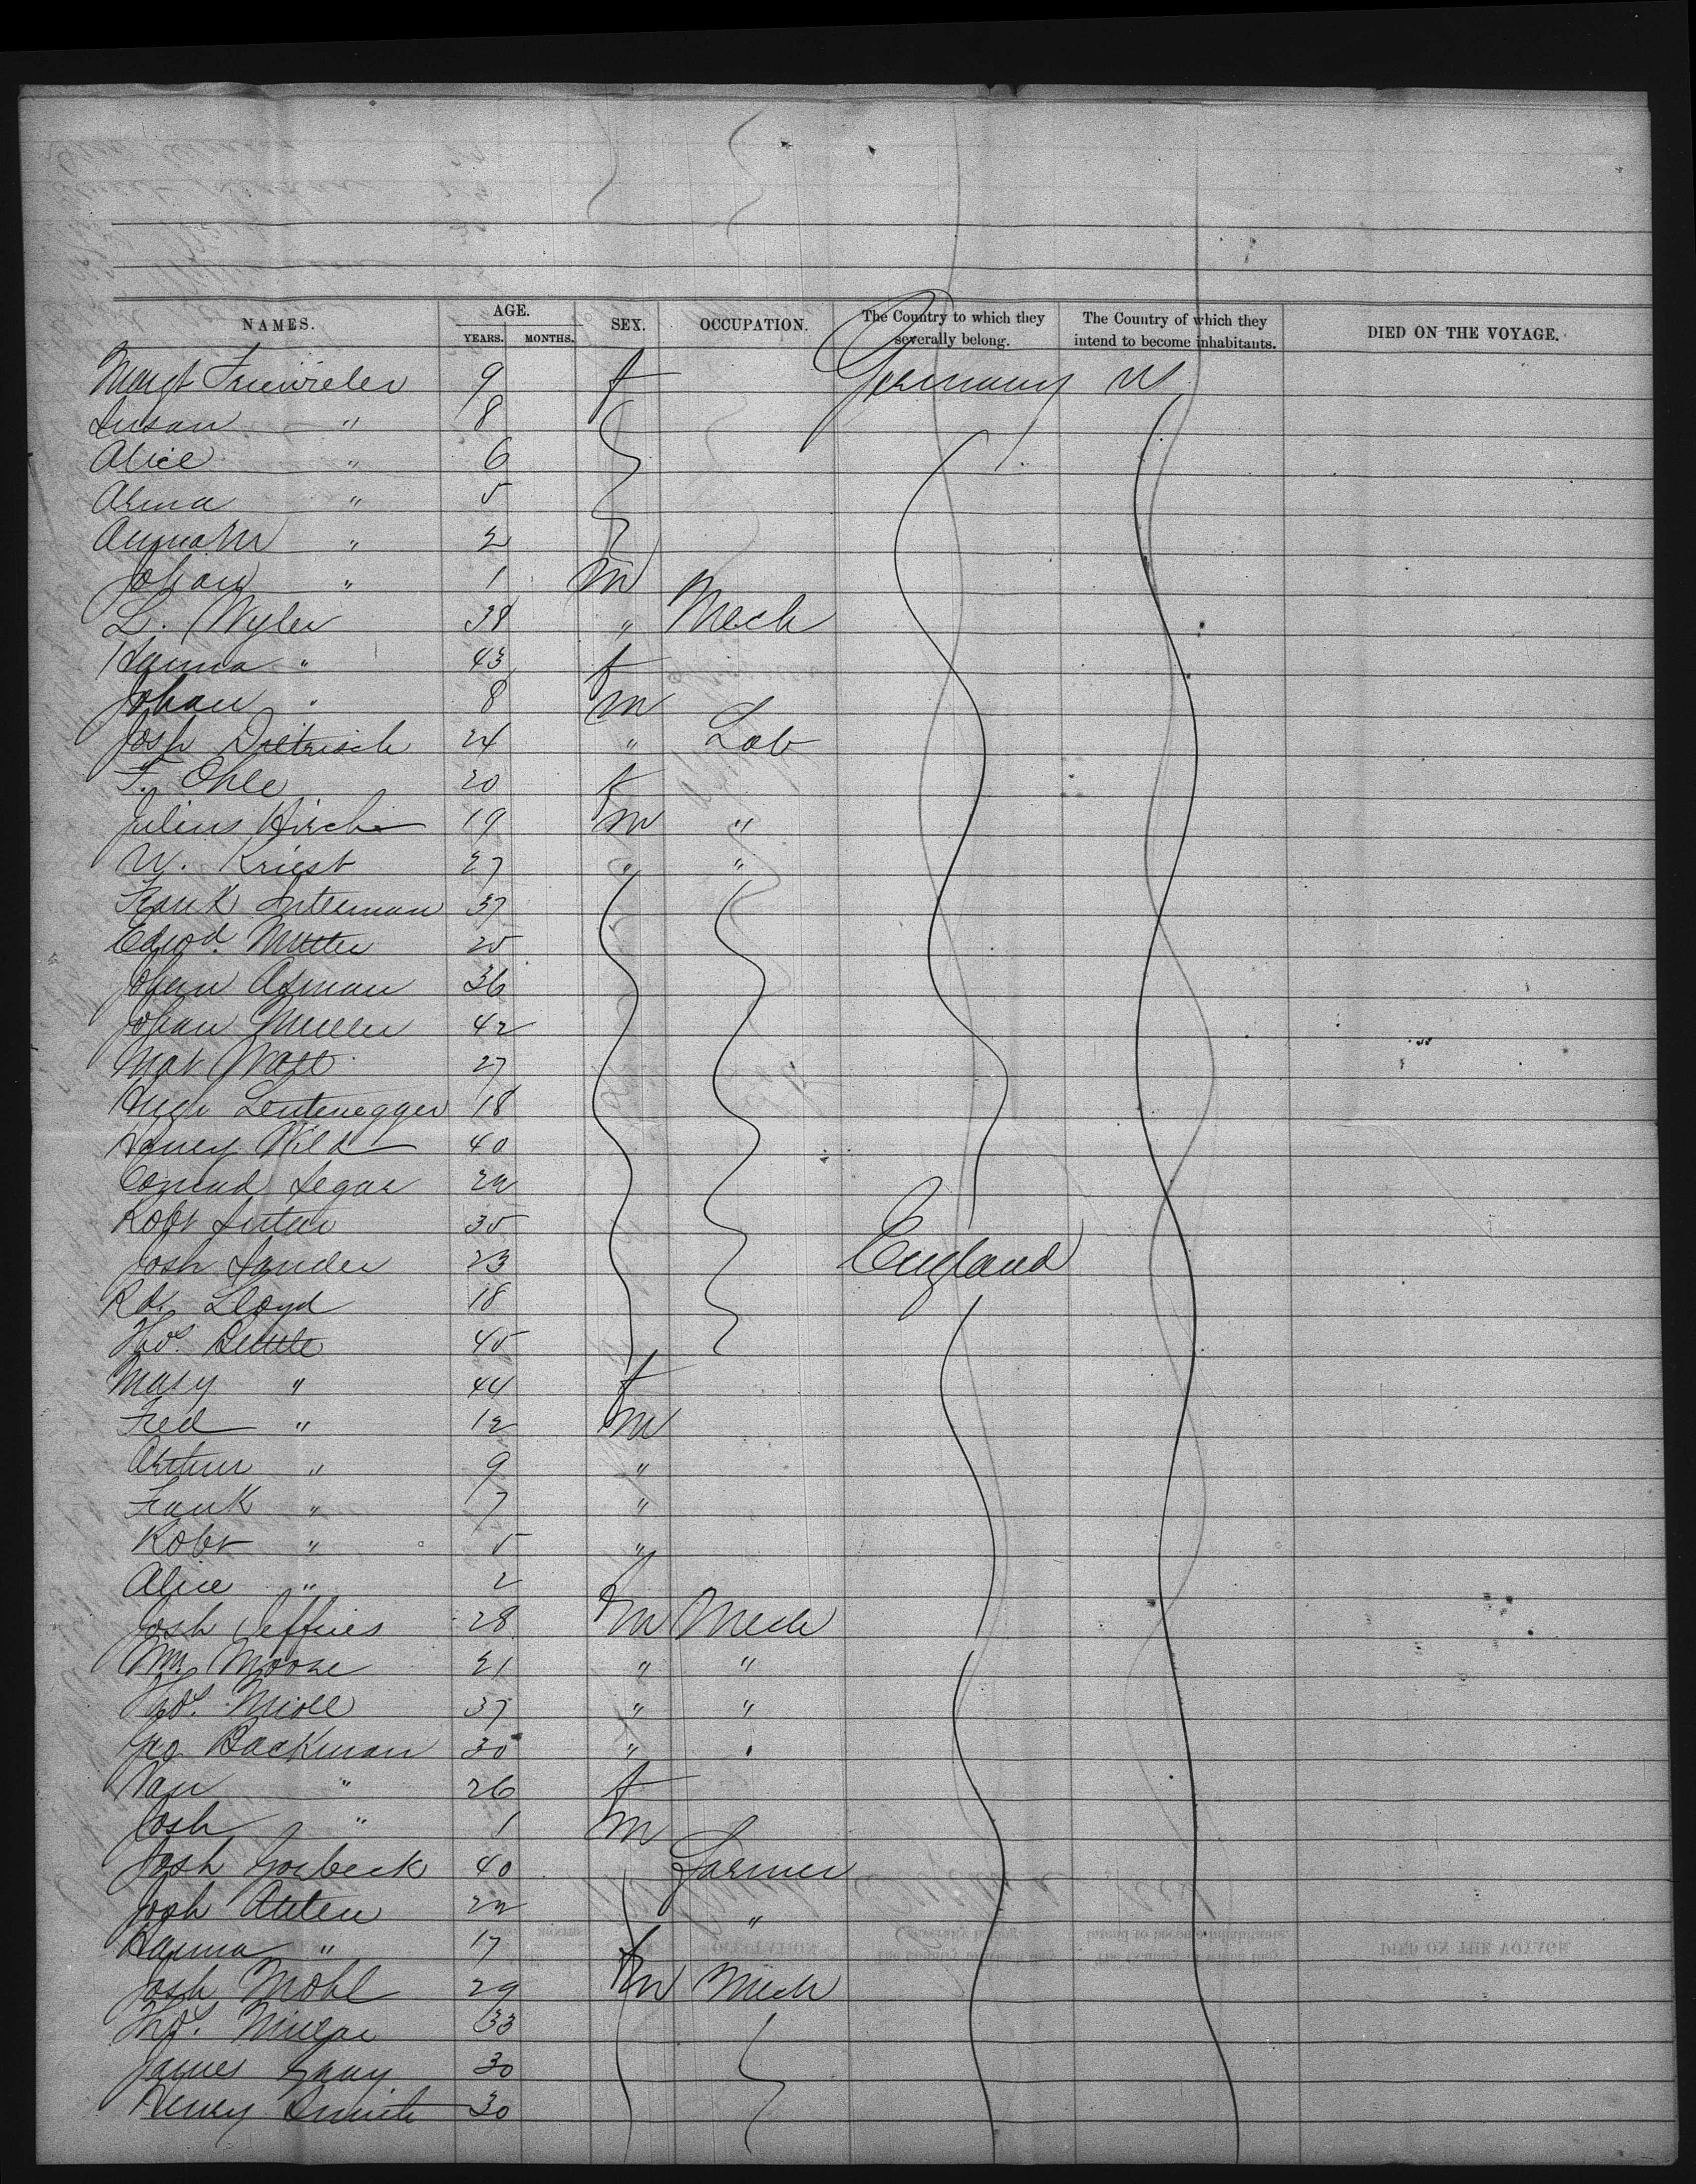 NAMES. AGE. YEARS. MONTHS. SEX. OCCUPATION. The Country to which they severally belong. The Country of which they intend to become inhabitants. DIED ON THE VOYAGE.
Margt 9 f Germany US
Susan " 8
Alice " 6
Anna " 5
Anna M " 2
Johan " 1 m
L. Wyler 38 " Mech
Hanna " 43 f
Johan " 8 m
Josh Dietrisch 24 " Lab
F. Ohle 20 f
Julius Hirche 19 m "
W. Kriest 27 " "
Frank Suterman 37
Edwd. Mutter 25
Johan Asman 36
Johan Muller 42
27
Hugh Leutenegger 18
Henry Wild 40
Conrad Segar 22
Robt Suter 35
Josh Sander 23 England
Rd. Lloyd 18
Thos. 45
Mary " 44 f
Fred " 12 m
Arthur " 9 "
Frank " 7 "
Robt " 5 "
Alice " 2 f
Josh Jeffries 28 m Mech
Wm. Moore 21 " "
Thos. 37 " "
Geo Backman 30 " "
Nan " 26 f
Josh " 1 m
Josh Gorbeck 40 Farmer
Josh Auten 22 "
Hanna " 17 f
Josh Mohl 29 m Mech
Thos. Millar 33
James Gray 30
Henry Smith 30